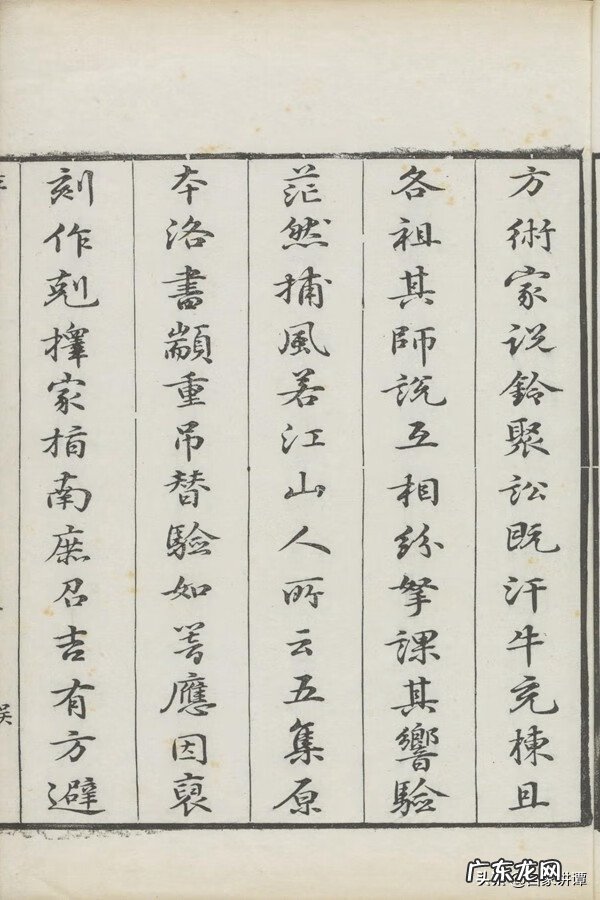 方術家说鈴聚訟既汗牛充棟且
各祖其師説互相紛拏課其響驗
茫然捕風若江山人所云五集原
本洛書顓重吊替驗如荅應因裒
刻作剋擇家指南庶召吉有方避
广东龙网